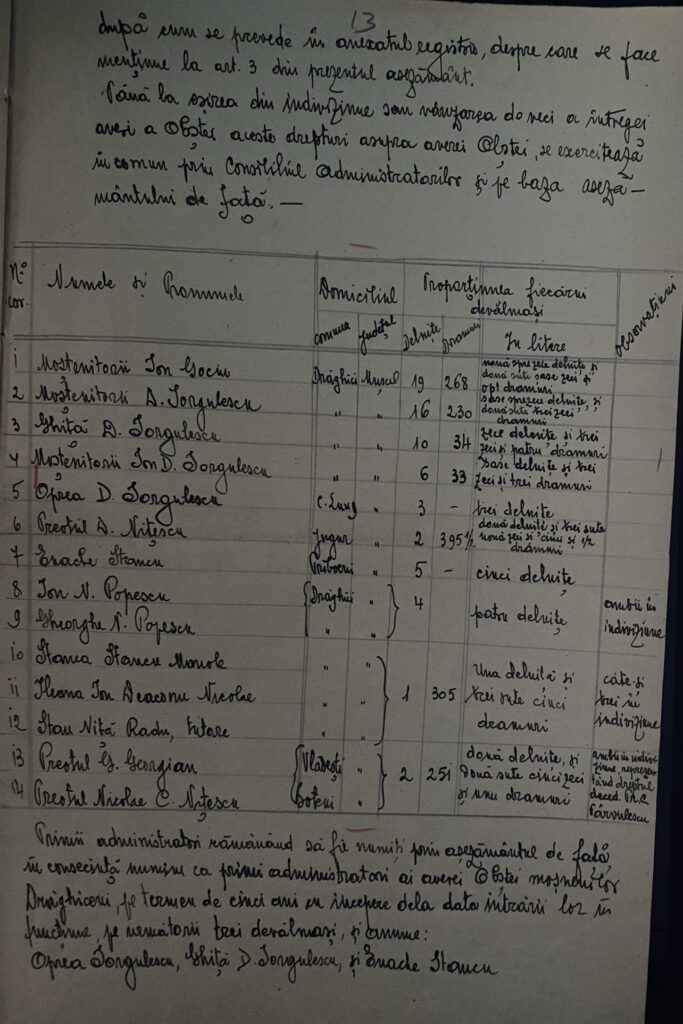 13
după cum se prevede în anexatul registru, despre care se face
mențiune la art. 3 din prezentul așezământ.
Până la eșirea din indiviziune sau vânzarea de veci a întregei
averi a Obștei aceste drepturi asupra averei Obștei, se exercitează
în comun prin Consiliul administratorilor și pe baza așeză-
mântului de față. —
No. cor. Numele și Pronumele Domiciliul Proporțiunea fiecărui devălmași observațiuni
comuna județul Delnițe Dramuri In litere
1 Moștenitorii Ion Gociu Drăghici Mușcel 19 268 nouă sprezece delnițe și două sute șase zeci și opt dramuri
2 Moștenitorii D. Iorgulescu " " 16 230 șase sprezece delnițe, și două sute trei zeci dramuri
3 Ghiță D. Iorgulescu " " 10 34 zece delnițe și trei zeci și patru dramuri
4 Moștenitorii Ion D. Iorgulescu " " 6 33 șase delnițe și trei zeci și trei dramuri
5 Oprea D. Iorgulescu C. Lung " 3 - trei delnițe
6 Preotul D. Nițescu Jugur " 2 395 1/2 două delnițe și trei sute nouă zeci și cinci și 1/2 dramuri
7 Enache Stancu Priboeni " 5 - cinci delnițe
8 Ion N. Popescu Drăghici " 4 patru delnițe ambii în indiviziune
9 Gheorghe N. Popescu " "
10 Stanca Stancu Manole " " 1 305 Una delniță și trei sute cinci dramuri câte-și trei în indiviziune
11 Ileana Ion Deaconu Nicolae " "
12 Stan Niță Radu, tutore " "
13 Preotul G. Georgian Vlădești " 2 251 două delnițe, și două sute cinci zeci și unu dramuri ambii în indiviziune, reprezentând dreptul deced. Pârvulescu
14 Preotul Nicolae C. Nițescu Boteni "
Primii administratori rămânând să fie numiți prin așezământul de față,
în consecință numim ca primi administratori ai averei Obștei moșnenilor
Drăghiceni, pe termen de cinci ani cu începere dela data intrării lor în
funcțiune, pe următorii trei devălmași, și anume:
Oprea Iorgulescu, Ghiță D. Iorgulescu, și Enache Stancu